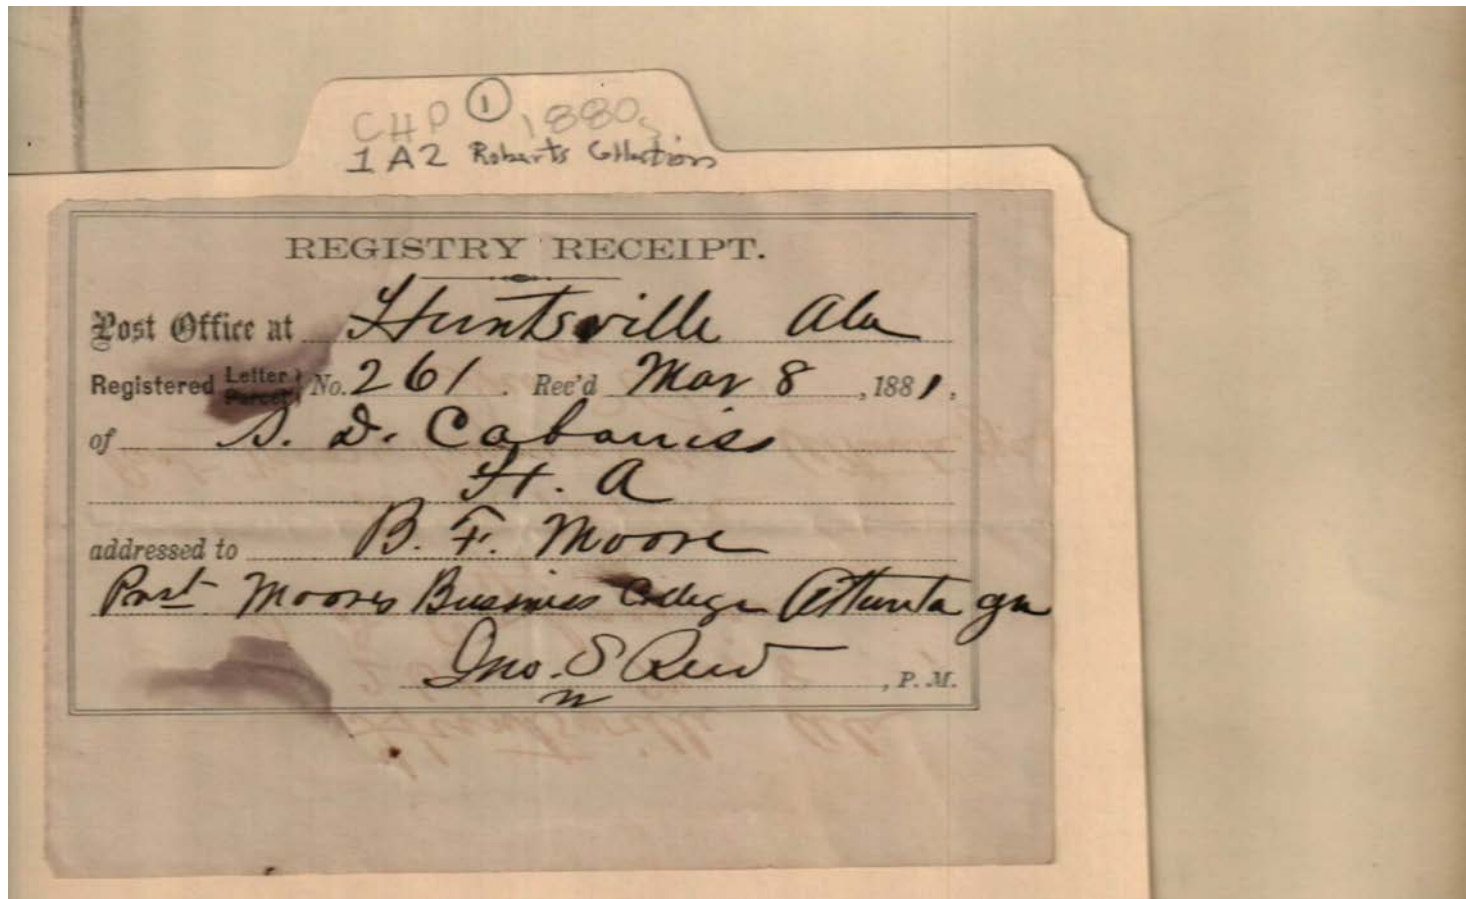 CHP ① 1880s
1A2 Roberts Collection
REGISTRY RECEIPT.
Post Office at Huntsville Ala
Registered Letter Parcel No. 261. Rec'd Mar 8, 1881.
of S. D. Cabaniss
H. A
addressed to B. F. Moore
Prest Moores Business College Atlanta Ga
Jno. S Reid, P. M.